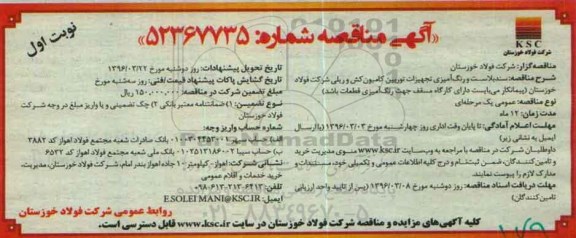 نوبت اول
«آگهی مناقصه شماره: ۵۲۳۶۷۷۳۵»
KSC
شرکت فولاد خوزستان
مناقصه‌گزار: شرکت فولاد خوزستان
شرح مناقصه: سندبلاست و رنگ‌آمیزی تجهیزات توربین کامیون کش و ریلی شرکت فولاد
خوزستان (پیمانکار می‌بایست دارای کارگاه مسقف جهت رنگ‌آمیزی قطعات باشد)
نوع مناقصه: عمومی یک مرحله‌ای
مدت زمان: ۱۲ ماه
مهلت اعلام آمادگی: تا پایان وقت اداری روز چهارشنبه مورخ ۱۳۹۶/۰۳/۰۳ (با ارسال
ایمیل به نشانی زیر)
داوطلبان شرکت در مناقصه با مراجعه به وب‌سایت www.ksc.ir قسمت مدیریت خرید
و تامین کنندگان، ضمن ثبت‌نام و درج کلیه اطلاعات عمومی و تکمیلی خود، مستندات و
مدارک لازم را پیوست نمایند.
مهلت دریافت اسناد مناقصه: روز دوشنبه مورخ ۱۳۹۶/۰۳/۰۸ (پس از تایید واحد ارزیابی
تامین کنندگان)
تاریخ تحویل پیشنهادات: روز دوشنبه مورخ ۱۳۹۶/۰۳/۲۲
تاریخ گشایش پاکات پیشنهاد قیمت/فنی: روز سه‌شنبه مورخ
مبلغ تضمین شرکت در مناقصه: ۱۵۰،۰۰۰،۰۰۰ ریال
نوع تضمین: ۱) ضمانتنامه معتبر بانکی ۲) چک تضمینی و یا واریز مبلغ در وجه شرکت
فولاد خوزستان
شماره حساب واریز وجه:
الف) حساب سیبا بانک صادرات شعبه مجتمع فولاد اهواز کد ۳۸۸۲
ب) حساب سیبا بانک ملی شعبه مجتمع فولاد اهواز کد ۶۵۳۲
نشانی شرکت: اهواز- کیلومتر ۱۰ جاده اهواز بندر امام، شرکت فولاد خوزستان، مدیریت،
خرید خدمات و اقلام عمومی
تلفن:
ایمیل: E.SOLEIMANI@KSC.IR
روابط عمومی شرکت فولاد خوزستان
کلیه آگهی‌های مزایده و مناقصه شرکت فولاد خوزستان در سایت www.ksc.ir قابل دسترسی است.